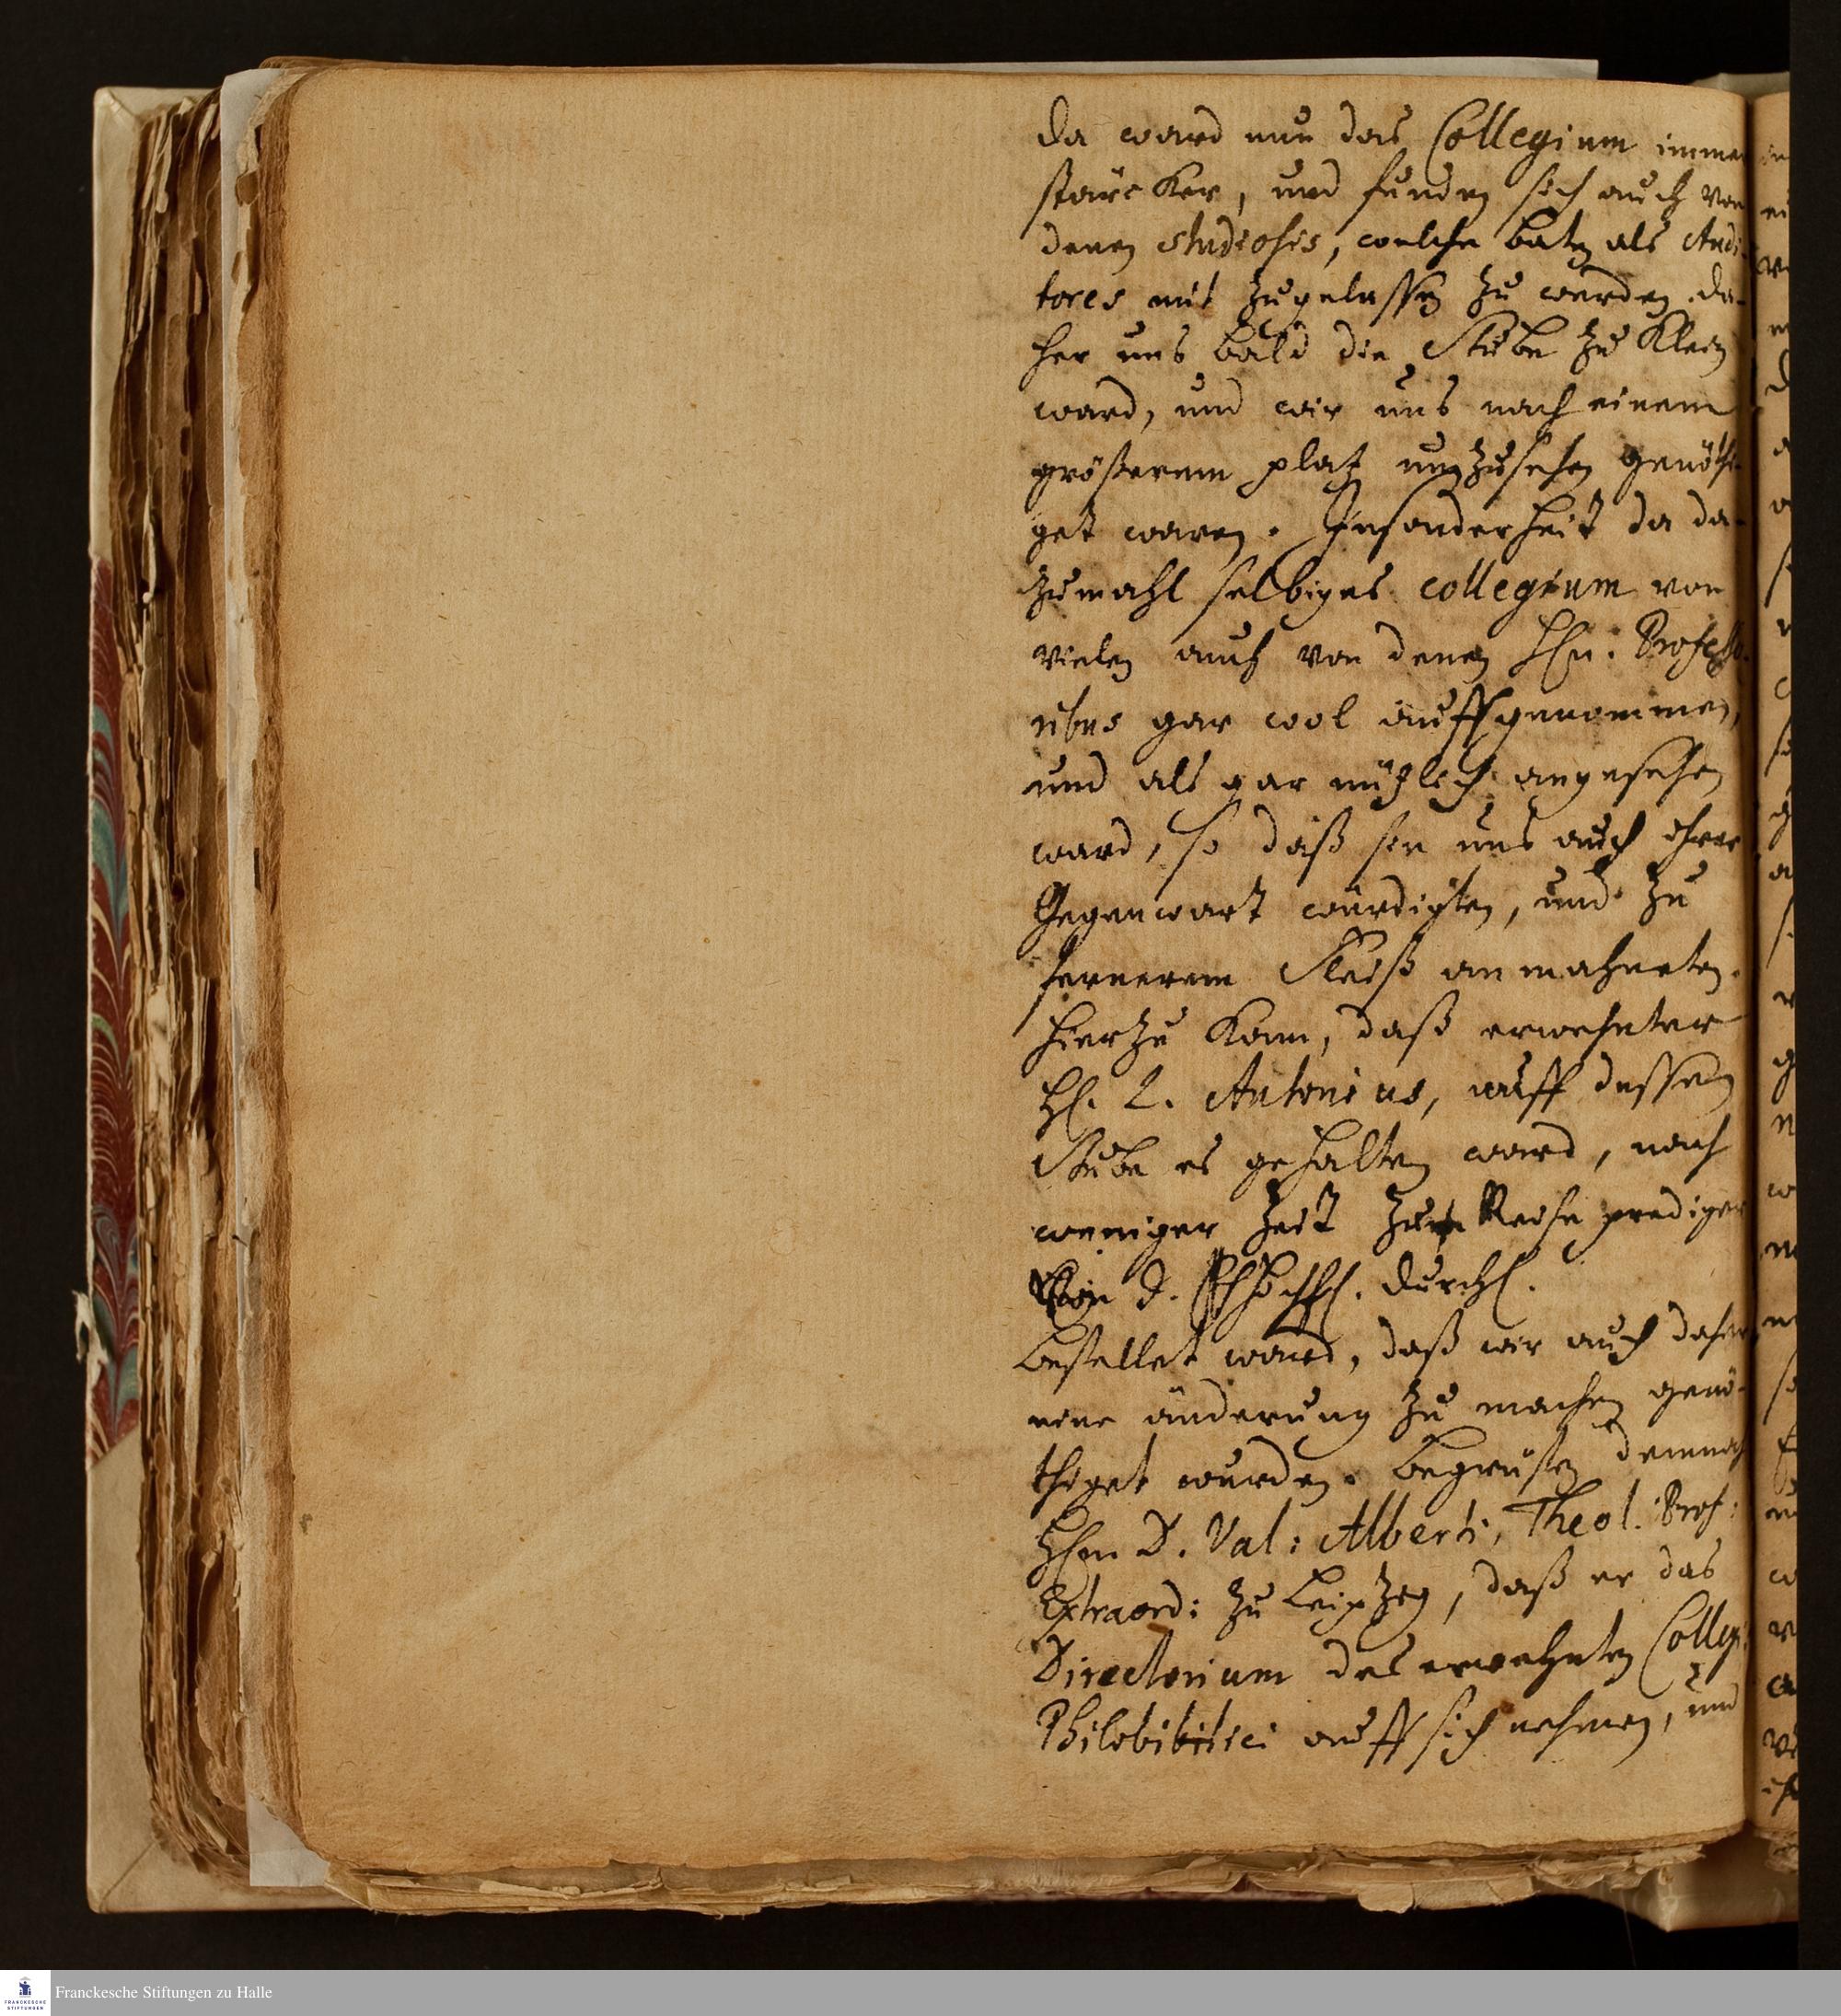 da ward nun das Collegium immer
stärcker, und funden sich auch von
denen studiosis, welche baten als Audi-
tores mit zugelassen zu werden, da-
her uns bald die Stube zu klein
ward, und wir uns nach einem
größerem platz umzusehen genöthi-
get waren. Insonderheit da da-
zumahl selbiges collegium von
vielen auch von denen Hhn. Professo-
ribus gar wol auffgenommen,
und als gar nützlich angesehen
ward, so daß sie uns auch ihrer
Gegenwart würdigten, und zu
fernerem Fleiß anmahneten.
hierzu kam, daß erwehnter
Hl. L. Antonius, auff dessen
Stube es gehalten ward, nach
weniger Zeit zum Reise prediger
von d. Durchl.
bestellet ward, daß wir auch daher
eine änderung zu machen genö-
thiget wurden. begrüßen demnach
Hhn D. Val: Alberti, Theol. Prof:
Extraord: zu Leipzig, daß er das
Directorium des erwehnten Colleg.
Philobiblici auff sich nehmen, und
Franckesche Stiftungen zu Halle
FRANCKESCHE
STIFTUNGEN